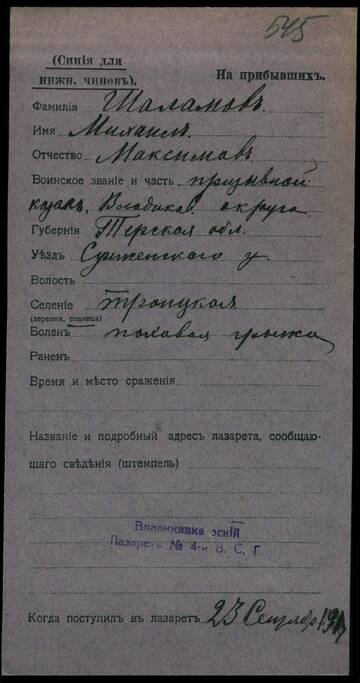 545
(Синія для
нижн. чиновъ).
На прибывшихъ.
Фамилія Шаламовъ
Имя Михаилъ
Отчество Максимовъ
Воинское званіе и часть призывной
казакъ, Владикав. округа
Губернія Терская обл.
Уѣздъ Сунженскаго у.
Волость
Селеніе Троицкая
(деревня, станица)
Боленъ паховая грыжа
Раненъ
Время и мѣсто сраженія
Названіе и подробный адресъ лазарета, сообщаю-
щаго свѣдѣнія (штемпель)
Владикавказскій
Лазаретъ № 4-й В. С. Г.
Когда поступилъ въ лазаретъ 23 Сентября